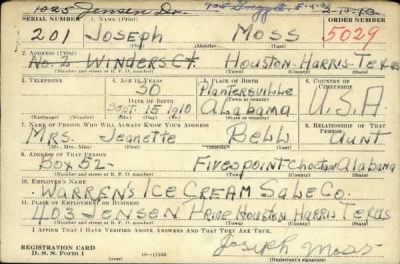 1025 Jensen Dr.
SERIAL NUMBER 1. NAME (Print) ORDER NUMBER
201 Joseph Moss 5029
(First) (Middle) (Last)
2. ADDRESS (Print)
No. 2 Winders Ct. Houston-Harris-Texas
(Number and street or R. F. D. number) (Town) (County) (State)
3. TELEPHONE 4. AGE IN YEARS 5. PLACE OF BIRTH 6. COUNTRY OF CITIZENSHIP
30 Plantersville
DATE OF BIRTH (Town or county)
Sept. 15 1910 Alabama U.S.A.
(Exchange) (No.) (Mo.) (Day) (Yr.) (State or country)
7. NAME OF PERSON WHO WILL ALWAYS KNOW YOUR ADDRESS 8. RELATIONSHIP OF THAT PERSON
Mrs. Jeanette Bell Aunt
(Mr., Mrs., Miss) (First) (Middle) (Last)
9. ADDRESS OF THAT PERSON
Box 52- Fivespoint Choctaw Alabama
(Number and street or R. F. D. number) (Town) (County) (State)
10. EMPLOYER'S NAME
Warren's Ice Cream Sale Co.
11. PLACE OF EMPLOYMENT OR BUSINESS
403 Jensen Drive Houston Harris Texas
(Number and street or R. F. D. number) (Town) (County) (State)
I AFFIRM THAT I HAVE VERIFIED ABOVE ANSWERS AND THAT THEY ARE TRUE.
REGISTRATION CARD
D. S. S. Form 1
16-17105
Joseph Moss
(Registrant's signature)